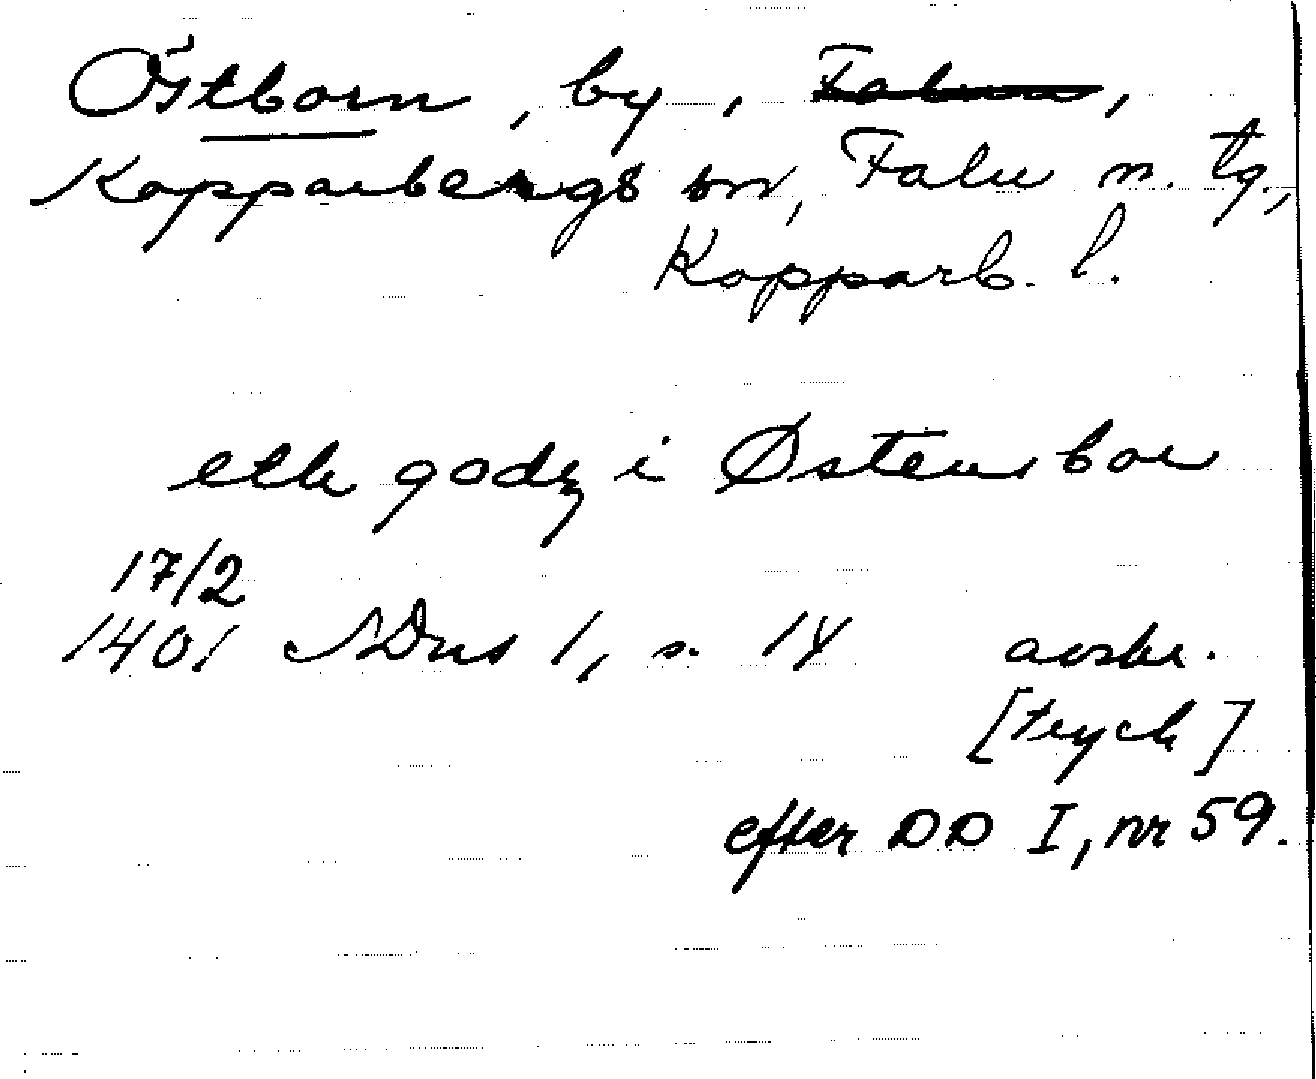 Östborn, by, Falun,
Kopparbergs sn, Falu n. tg.,
Kopparb. l.
eth godz i Østensboe
17/2
1401 NDns 1, s. 14 avskr.
[tryck]
efter DD I, nr 59.